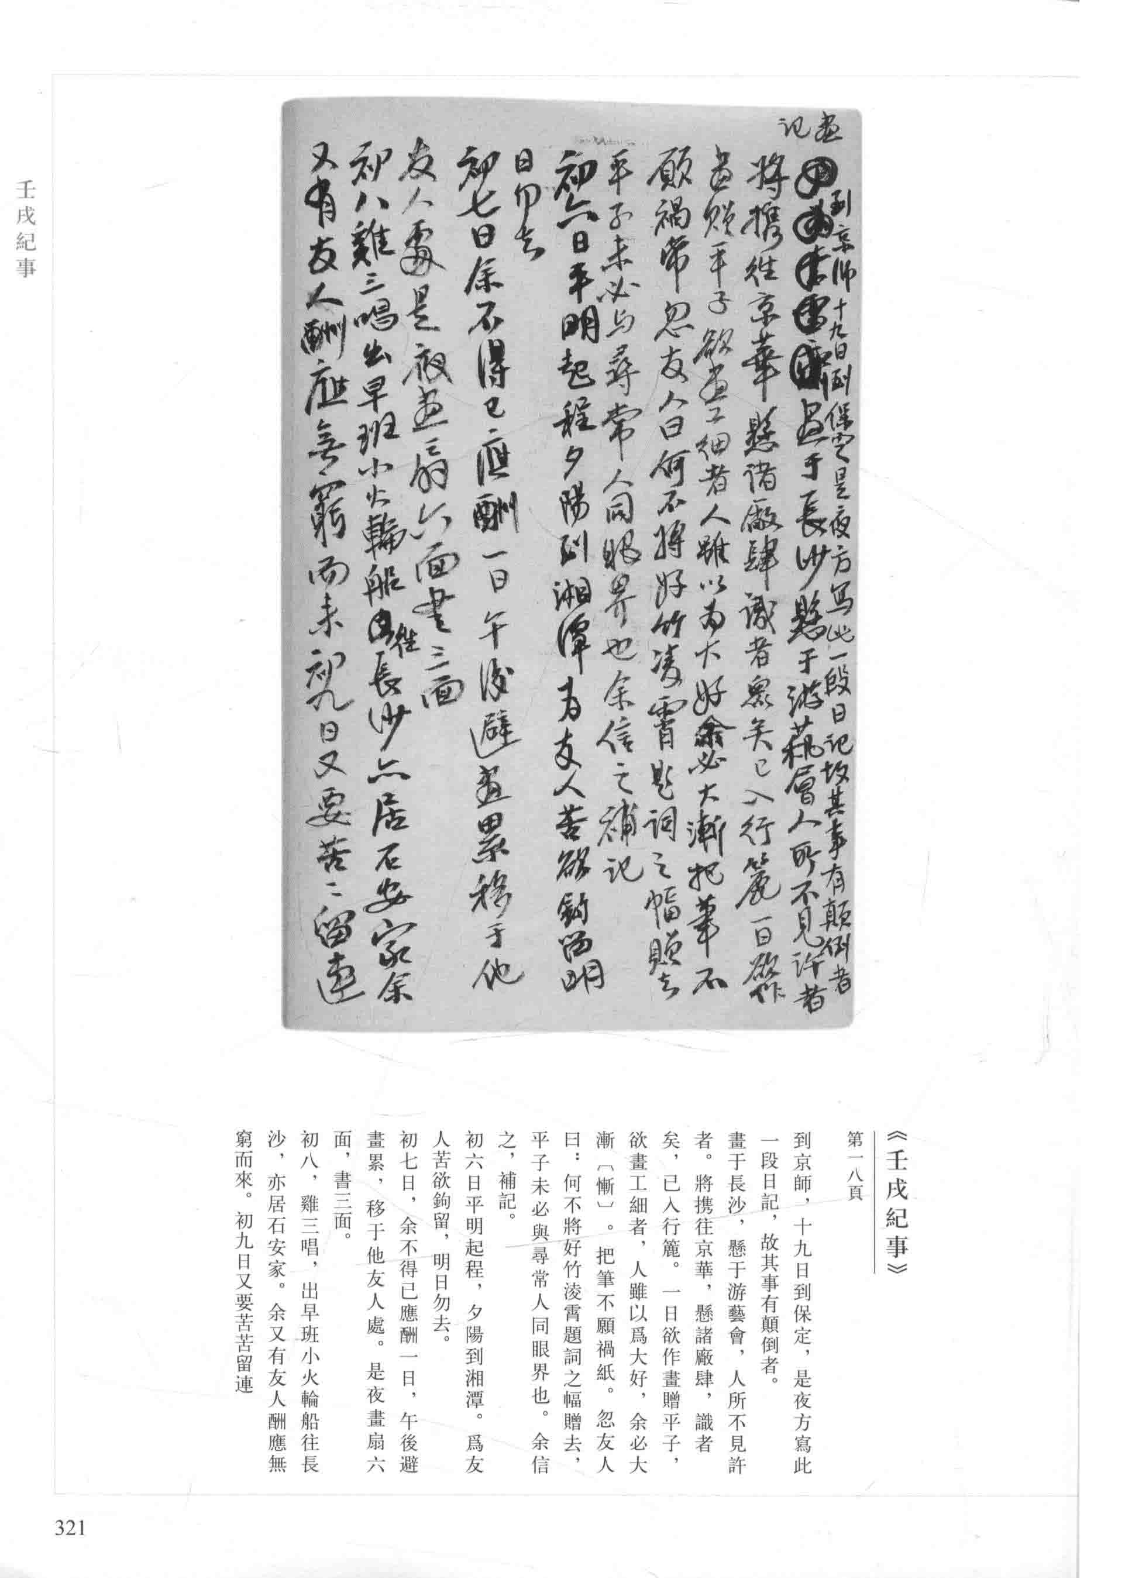 壬戌紀事
畫
記
到京師十九日到保定是夜方寫此一段日記故其事有顛倒者
畫于長沙懸于游藝會人所不見許者
將携往京華懸諸廠肆識者衆矣已入行簏一日欲作
畫贈平子欲畫工細者人雖以为大好余必大漸把筆不
願禍紙忽友人曰何不將好竹凌霄題詞之幅贈去
平子未必与尋常人同眼界也余信之補記
初六日平明起程夕陽到湘潭为友人苦欲鉤留明
日勿去
初七日余不得已應酬一日午後避畫累移于他
友人處是夜畫扇六面書三面
初八雞三唱出早班小火輪船往長沙亦居石安家余
又有友人酬應無窮而来初九日又要苦〻留連
《壬戌紀事》
第一八頁
到京師，十九日到保定，是夜方寫此
一段日記，故其事有顛倒者。
畫于長沙，懸于游藝會，人所不見許
者。將携往京華，懸諸廠肆，識者
矣，已入行簏。一日欲作畫贈平子，
欲畫工細者，人雖以爲大好，余必大
漸〔慚〕。把筆不願禍紙。忽友人
曰：何不將好竹淩霄題詞之幅贈去，
平子未必與尋常人同眼界也。余信
之，補記。
初六日平明起程，夕陽到湘潭。爲友
人苦欲鉤留，明日勿去。
初七日，余不得已應酬一日，午後避
畫累，移于他友人處。是夜畫扇六
面，書三面。
初八，雞三唱，出早班小火輪船往長
沙，亦居石安家。余又有友人酬應無
窮而來。初九日又要苦苦留連
321